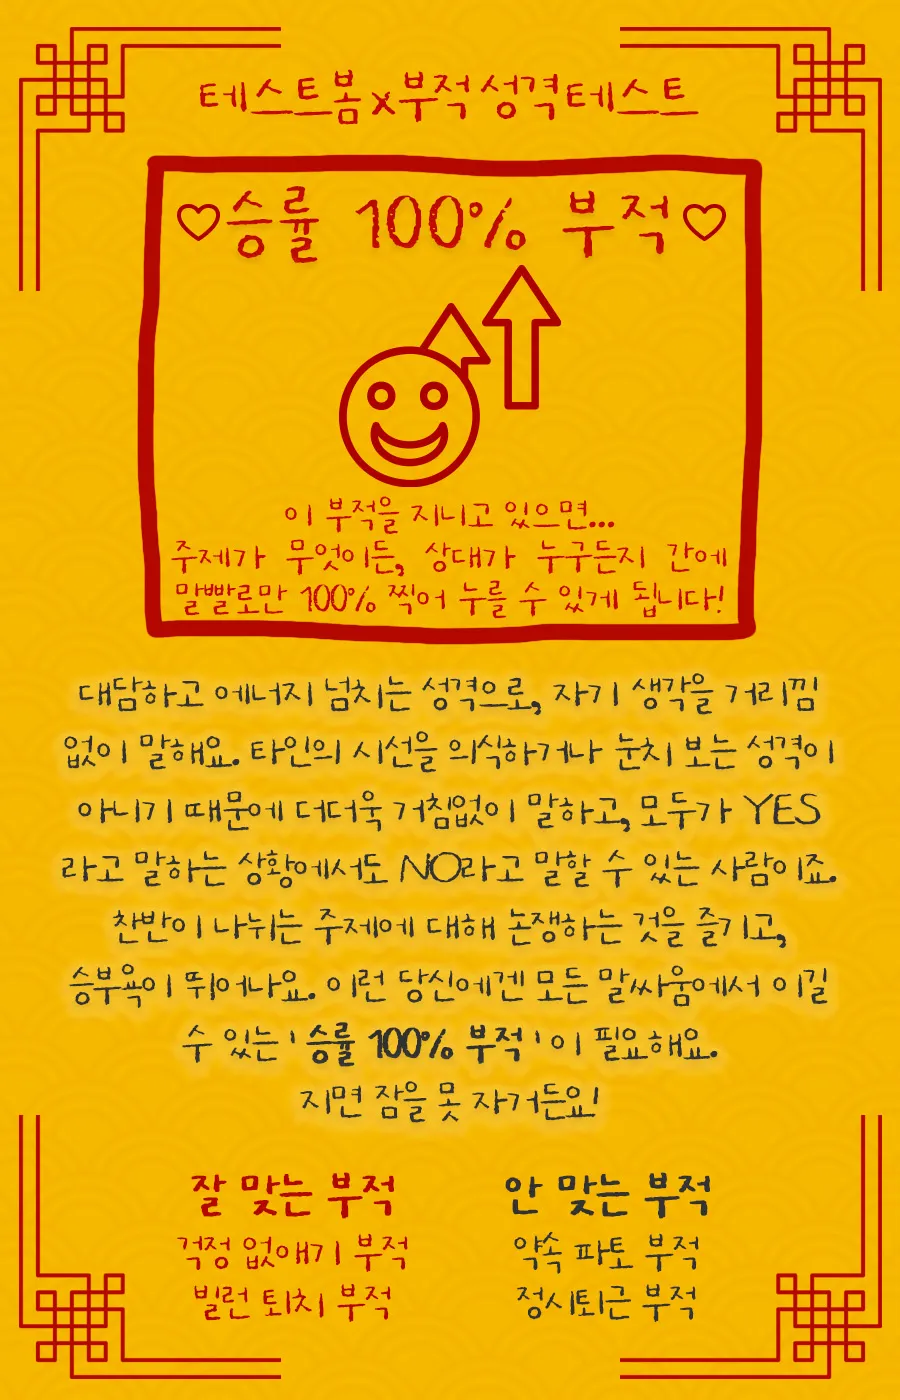 테스트봄x부적성격테스트
♡승률 100% 부적♡
이 부적을 지니고 있으면...
주제가 무엇이든, 상대가 누구든지 간에
말빨로만 100% 찍어 누를 수 있게 됩니다!
대담하고 에너지 넘치는 성격으로, 자기 생각을 거리낌
없이 말해요. 타인의 시선을 의식하거나 눈치 보는 성격이
아니기 때문에 더더욱 거침없이 말하고, 모두가 YES
라고 말하는 상황에서도 NO라고 말할 수 있는 사람이죠.
찬반이 나뉘는 주제에 대해 논쟁하는 것을 즐기고,
승부욕이 뛰어나요. 이런 당신에겐 모든 말싸움에서 이길
수 있는 '승률 100% 부적'이 필요해요.
지면 잠을 못 자거든요!
잘 맞는 부적
걱정 없애기 부적
빌런 퇴치 부적
안 맞는 부적
약속 파토 부적
정시퇴근 부적